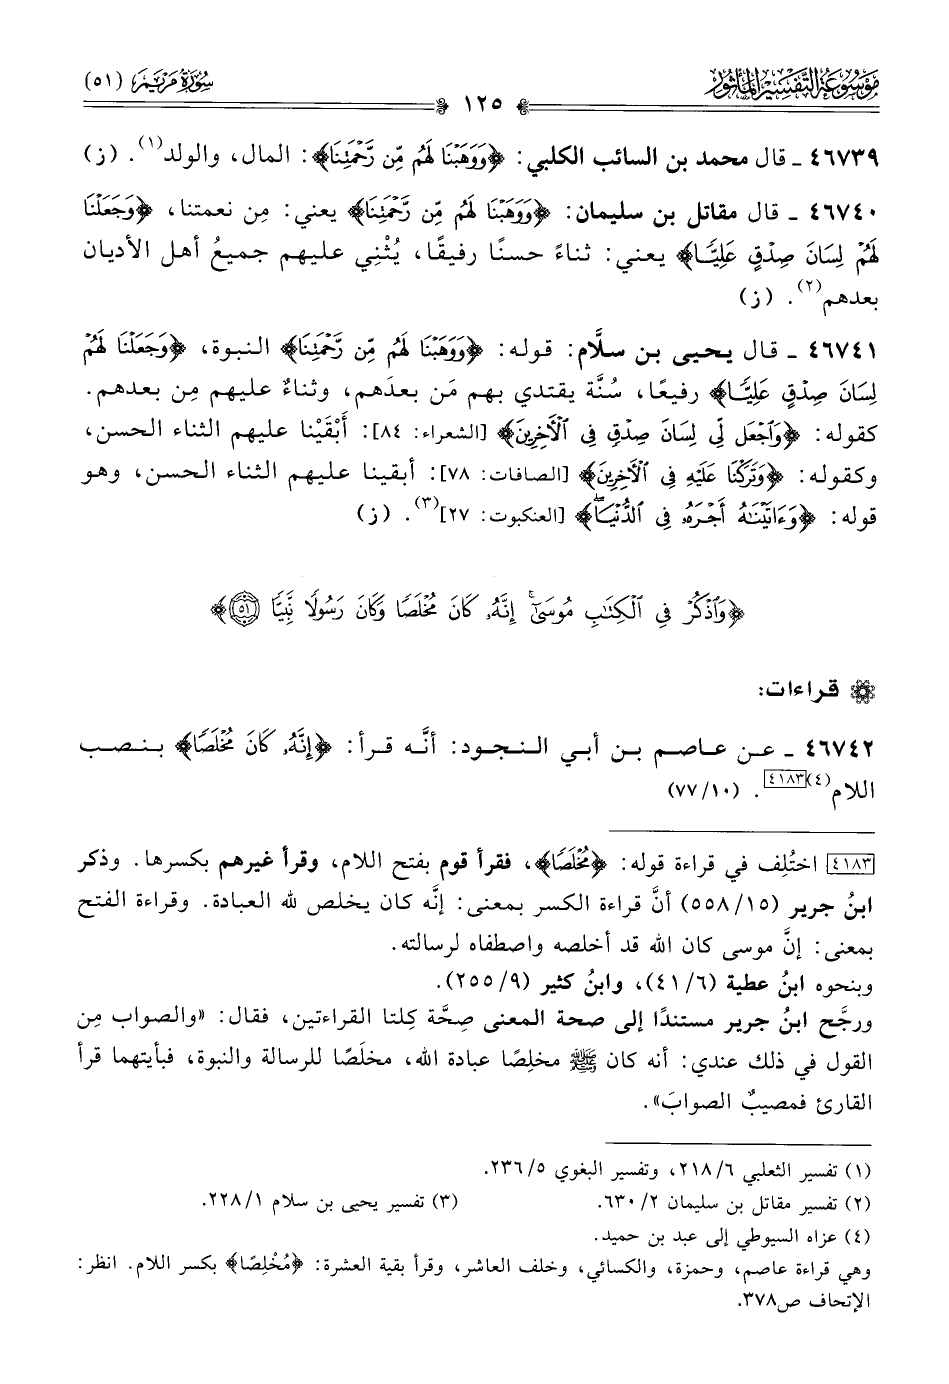 مَوْسُوعَة التَّفْسِير المَأْثُور
سُورَةُ مَرْيَم (٥١)
١٢٥
٤٦٧٣٩ ـ قال محمد بن السائب الكلبي: ﴿وَوَهَبْنَا لَهُم مِّن رَّحْمَتِنَا﴾: المال، والولد(١). (ز)
٤٦٧٤٠ ـ قال مقاتل بن سليمان: ﴿وَوَهَبْنَا لَهُم مِّن رَّحْمَتِنَا﴾ يعني: مِن نعمتنا، ﴿وَجَعَلْنَا
لَهُمْ لِسَانَ صِدْقٍ عَلِيًّا﴾ يعني: ثناءً حسنًا رفيقًا، يُثْنِي عليهم جميعُ أهل الأديان
بعدهم(٢). (ز)
٤٦٧٤١ ـ قال يحيى بن سلَّام: قوله: ﴿وَوَهَبْنَا لَهُم مِّن رَّحْمَتِنَا﴾ النبوة، ﴿وَجَعَلْنَا لَهُمْ
لِسَانَ صِدْقٍ عَلِيًّا﴾ رفيعًا، سُنَّة يقتدي بهم مَن بعدَهم، وثناءٌ عليهم مِن بعدهم.
كقوله: ﴿وَاجْعَل لِّي لِسَانَ صِدْقٍ فِي الْآخِرِينَ﴾ [الشعراء: ٨٤]: أَبْقَيْنا عليهم الثناء الحسن،
وكقوله: ﴿وَتَرَكْنَا عَلَيْهِ فِي الْآخِرِينَ﴾ [الصافات: ٧٨]: أبقينا عليهم الثناء الحسن، وهو
قوله: ﴿وَءَاتَيْنَٰهُ أَجْرَهُۥ فِي الدُّنْيَا﴾ [العنكبوت: ٢٧](٣). (ز)
﴿وَاذْكُرْ فِي الْكِتَٰبِ مُوسَىٰٓ إِنَّهُۥ كَانَ مُخْلَصًا وَكَانَ رَسُولًا نَّبِيًّا ٥١﴾
قراءات:
٤٦٧٤٢ ـ عن عاصم بن أبي النجود: أنَّه قرأ: ﴿إِنَّهُۥ كَانَ مُخْلَصًا﴾ بنصب
اللام(٤)[٤١٨٣]. (١٠/٧٧)
[٤١٨٣] اختُلِف في قراءة قوله: ﴿مُخْلَصًا﴾، فقرأ قوم بفتح اللام، وقرأ غيرهم بكسرها. وذكر
ابنُ جرير (١٥/٥٥٨) أنَّ قراءة الكسر بمعنى: إنَّه كان يخلص لله العبادة. وقراءة الفتح
بمعنى: إنَّ موسى كان الله قد أخلصه واصطفاه لرسالته.
وبنحوه ابنُ عطية (٦/٤١)، وابنُ كثير (٩/٢٥٥).
ورجَّح ابنُ جرير مستندًا إلى صحة المعنى صِحَّة كِلتا القراءتين، فقال: «والصواب مِن
القول في ذلك عندي: أنه كان ﷺ مخلِصًا عبادة الله، مخلَصًا للرسالة والنبوة، فبأيتهما قرأ
القارئ فمصيبٌ الصوابَ».
(١) تفسير الثعلبي ٦/٢١٨، وتفسير البغوي ٥/٢٣٦.
(٢) تفسير مقاتل بن سليمان ٢/٦٣٠. (٣) تفسير يحيى بن سلام ١/٢٢٨.
(٤) عزاه السيوطي إلى عبد بن حميد.
وهي قراءة عاصم، وحمزة، والكسائي، وخلف العاشر، وقرأ بقية العشرة: ﴿مُخْلِصًا﴾ بكسر اللام. انظر:
الإتحاف ص٣٧٨.